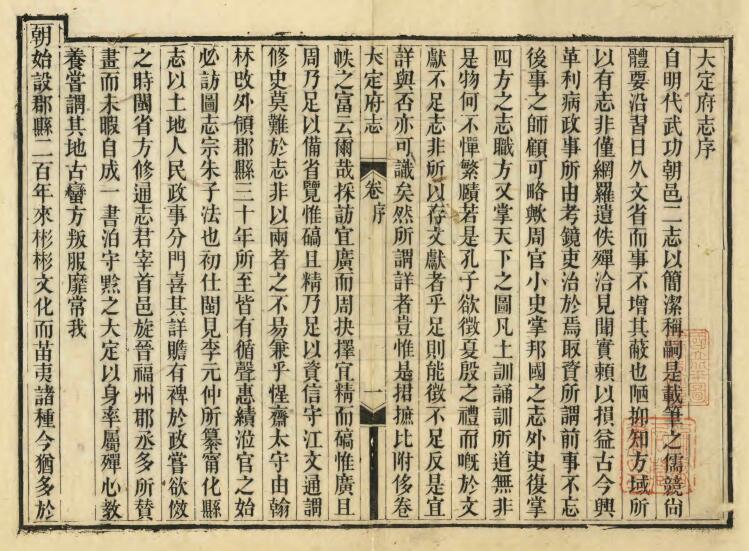 大定府志序
自明代武功朝邑二志以簡潔稱嗣是載筆之儒競尙
體要沿習日久文省而事不增其蔽也陋抑知方域所
以有志非僅網羅遺佚殫洽見聞實賴以損益古今興
革利病政事所由考鏡吏治於焉取資所謂前事不忘
後事之師顧可略歟周官小史掌邦國之志外史復掌
四方之志職方又掌天下之圖凡土訓誦訓所道無非
是物何不憚繁賾若是孔子欲徵夏殷之禮而嘅於文
獻不足志非所以存文獻者乎足則能徵不足反是宜
詳與否亦可識矣然所謂詳者豈惟是捃摭比附侈卷
大定府志
卷序
一
帙之富云爾哉採訪宜廣而周抉擇宜精而碻惟廣且
周乃足以備省覽惟碻且精乃足以資信守江文通謂
修史莫難於志非以兩者之不易兼乎惺齋太守由翰
林改外領郡縣三十年所至皆有循聲惠績涖官之始
必訪圖志宗朱子法也初仕閩見李元仲所纂甯化縣
志以土地人民政事分門喜其詳贍有裨於政嘗欲倣
之時閩省方修通志君宰首邑旋晉福州郡丞多所贊
畫而未暇自成一書洎守黔之大定以身率屬殫心敎
養嘗謂其地古蠻方叛服靡常我
朝始設郡縣二百年來彬彬文化而苗夷諸種今猶多於